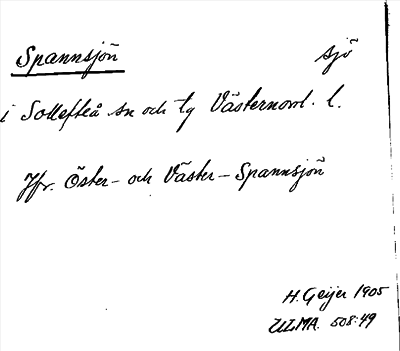 Spannsjön sjö
i Sollefteå sn och tg Västernorrl. l.
Jfr. Öster- och Väster-Spannsjön
H. Geijer 1905
ULMA. 508:49